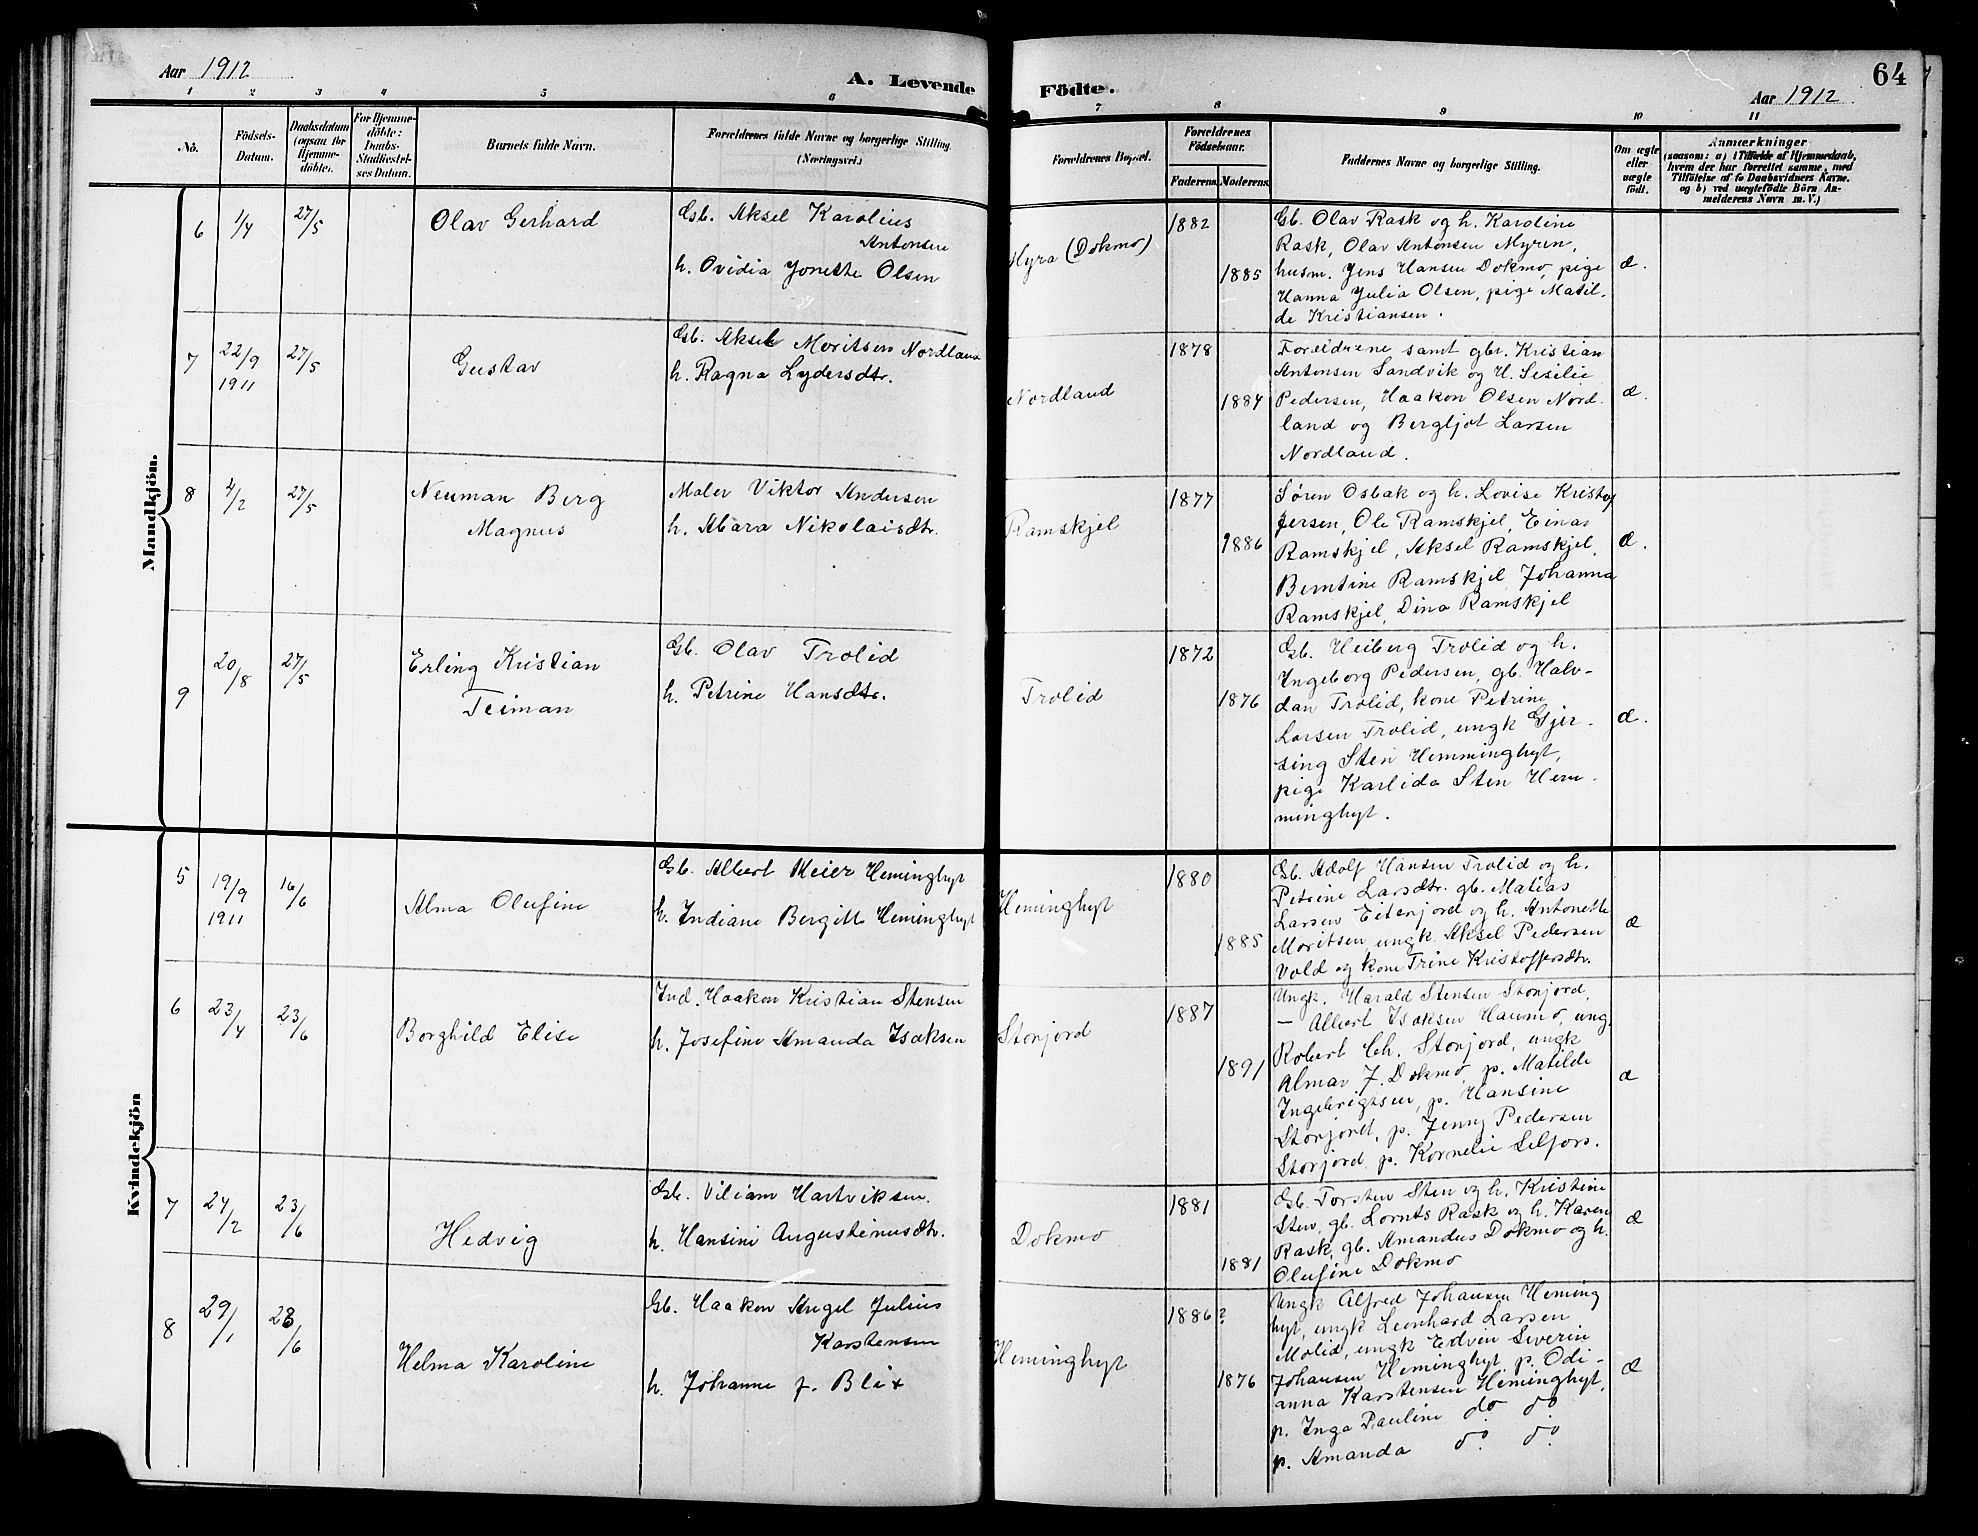 Aar 1912
A. Levende Födte.
64
Aar 1912
1 2 3 4 5 6 7 8 9 10 11
No.
Födsels-
Datum.
Daabsdatum
(ogsaa for
Hjemme-
döbte).
For Hjemme-
döbte:
Daabs-
Stadfæstel-
ses Datum.
Barnets fulde Navn.
Forældrenes fulde Navne og borgerlige Stilling
(Næringsvei.)
Forældrenes Bopæl.
Forældrenes
Födselsaar.
Faderens. Moderens.
Faddernes Navne og borgerlige Stilling.
Om ægte
eller
uægte
födt.
Anmærkninger
(saasom: a) i Tilfælde af Hjemmedaab,
hvem der har forrettet samme, med
Tilföielse af to Daabsvidners Navne.
og b) ved uægtefödte Börn An-
melderens Navn m. V.)
Mandkjön.
6
1/4
27/5
Olav Gerhard
Gb. Aksel Karolius
Antonsen
h. Ovidia Jonette Olsen
Myra (Dokmo)
1882
1885
Gb. Olav Rask og h. Karoline
Rask, Olav Antonsen Myren,
husm. Jens Hansen Dokmo, pige
Hanna Julia Olsen, pige Matil-
de Kristiansen.
æ.
7
22/9
1911
27/5
Gustav
Gb. Aksel Moritsen Nordland
h. Ragna Lydersdtr.
Nordland
1878
1884
Forældrene samt gbr. Kristian
Antonsen Sandvik og H. Sesilie
Pedersen, Haakon Olsen Nord-
land og Bergljot Larsen
Nordland.
æ.
8
4/2
27/5
Neuman Berg
Magnus
Maler Viktor Andersen
h. Mara Nikolaisdtr.
Ramskjel
1877
1886
Søren Osbak og h. Lovise Kristof
fersen, Ole Ramskjel, Einar
Ramskjel, Aksel Ramskjel,
Berntine Ramskjel, Johanna
Ramskjel, Dina Ramskjel
æ.
9
20/8
27/5
Erling Kristian
Teiman
Gb. Olav Trolid
h. Petrine Hansdtr.
Trolid
1872
1876
Gb. Heiberg Trolid og h.
Ingeborg Pedersen, gb. Halv-
dan Trolid, kone Petrine
Larsen Trolid, ungk Gjer-
sing Sten Hemminghyt,
pige Karlida Sten Hem-
minghyt.
æ.
Kvindekjön
5
19/9
1911
16/6
Alma Olufine
Gb. Albert Meier Heminghyt
h. Indiane Bergitte Heminghyt
Heminghyt
1880
1885
Gb. Adolf Hansen Trolid og h.
Petrine Larsdtr. gb. Matias
Larsen Eiterjord og h. Antonette
Moritsen, ungk. Aksel Pedersen
Vold og kone Trine Kristoffersdtr.
æ
6
23/4
23/6
Borghild Elise
Ind. Haakon Kristian Stensen
h. Josefine Amanda Isaksen
Storjord
1887
1891
Ungk. Harald Stensen Storjord,
— Albert Isaksen Haumo, ung
Robert Ch. Storjord, ungk
Almar J. Dokmo, p. Matilde
Ingebrigtsen, p. Hansine
Storjord, p. Jenny Pedersen
Storjord, p. Kornelie Selfors.
æ
7
24/2
23/6
Hedvig
Gb. Viliam Hartviksen.
h. Hansine Augustinusdtr.
Dokmo
1881
1881
Gb. Torsten Sten og h. Kristine
Sten, gb. Lornts Rask og h. Karen
Rask, gb. Amandus Dokmo og h.
Olufine Dokmo
æ
8
29/1
23/6
Helma Karoline
Gb. Haakon Angel Julius
Karstensen
h. Johanne f. Blix
Heminghyt
1886 ?
1876
Ungk Alfred Johansen Heming
hyt, ungk Leonhard Larsen
Molid, ungk Edvin Severin
Johansen Heminghyt, p. Odi-
anna Karstensen Heminghyt,
p. Inga Pauline do do
p. Amanda do do
æ